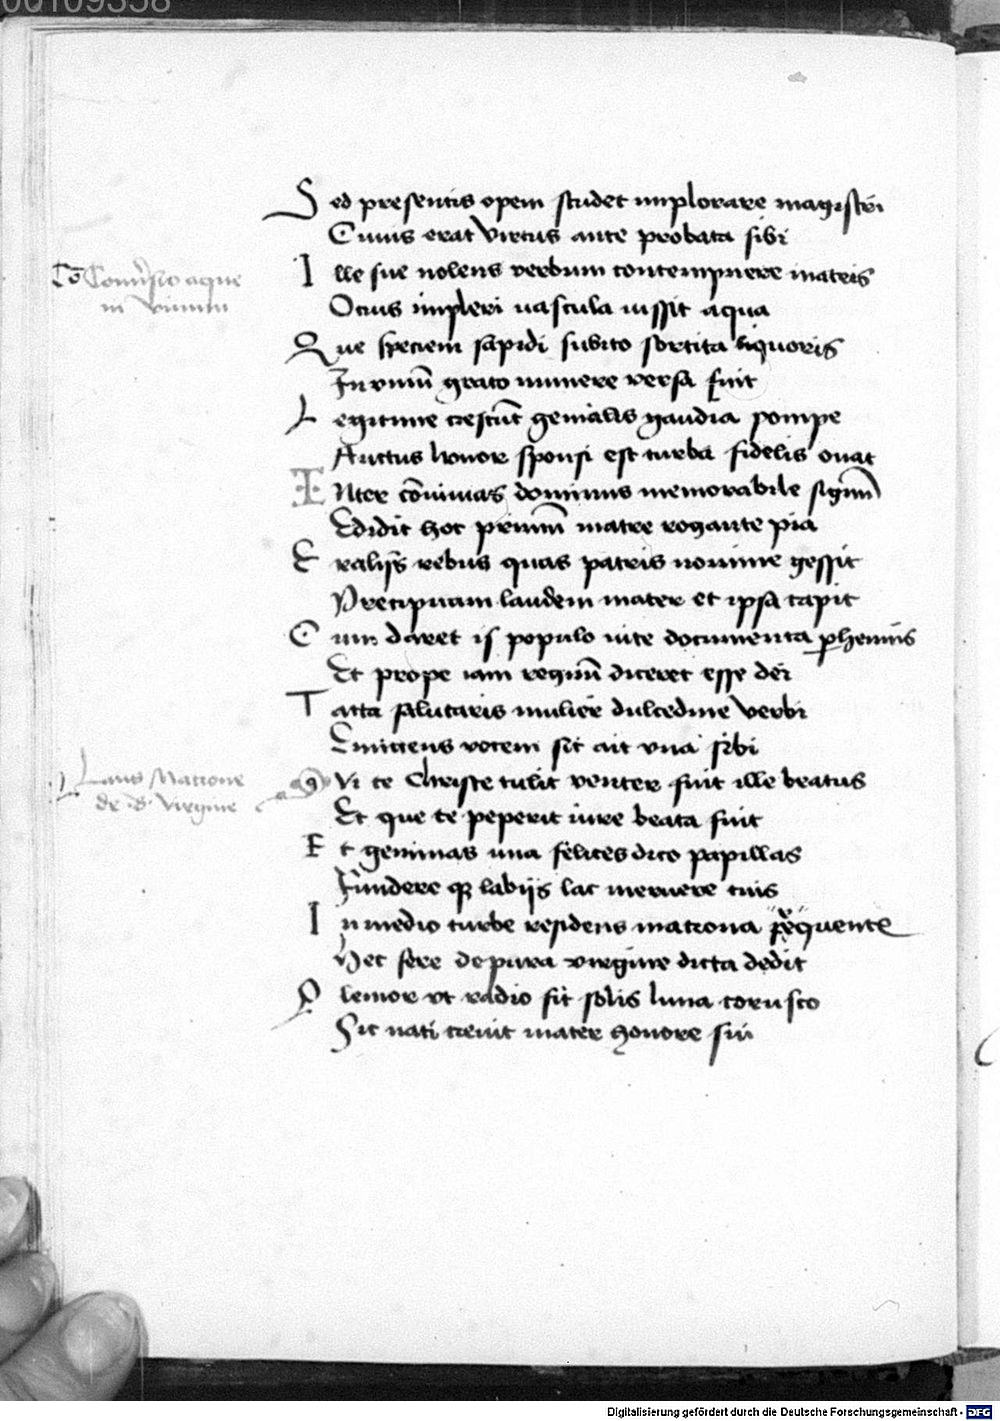 00109358
Sed presentis opem studet implorare magistri
Cuius erat virtus ante probata sibi
Ille sue nolens verbum contempnere matris
Conuersio aque
in vinum
Ocius impleri uascula iussit aqua
Que speciem sapidi subito sortita liquoris
In vinũ grato munere versa fuit
Legitime crescũt genialis gaudia pompe
Auctus honor sponsi est turba fidelis ouat
INter cõuiuas dominus memorabile signũ
Edidit hoc primũ matre rogante pia
E rebus quas patris nomine gessit
Precipuam laudem mater et ipsa capit
Cum daret is populo uite documenta perhennis
Et prope iam regnũ diceret esse dei
Tacta salutaris mulier dulcedine verbi
Emittens vocem sic ait vna sibi
QVi te Christe tulit venter fuit ille beatus
Laus Matrone
de b. virgine
Et que te peperit iure beata fuit
Et geminas una felices dico papillas
Fundere que labijs lac meruere tuis
In medio turbe residens matrona frequente
Hec fere de pura virgine dicta dedit
Clarior vt radio fit solis luna corusco
Sic nati creuit mater honore sui
Digitalisierung gefördert durch die Deutsche Forschungsgemeinschaft - DFG